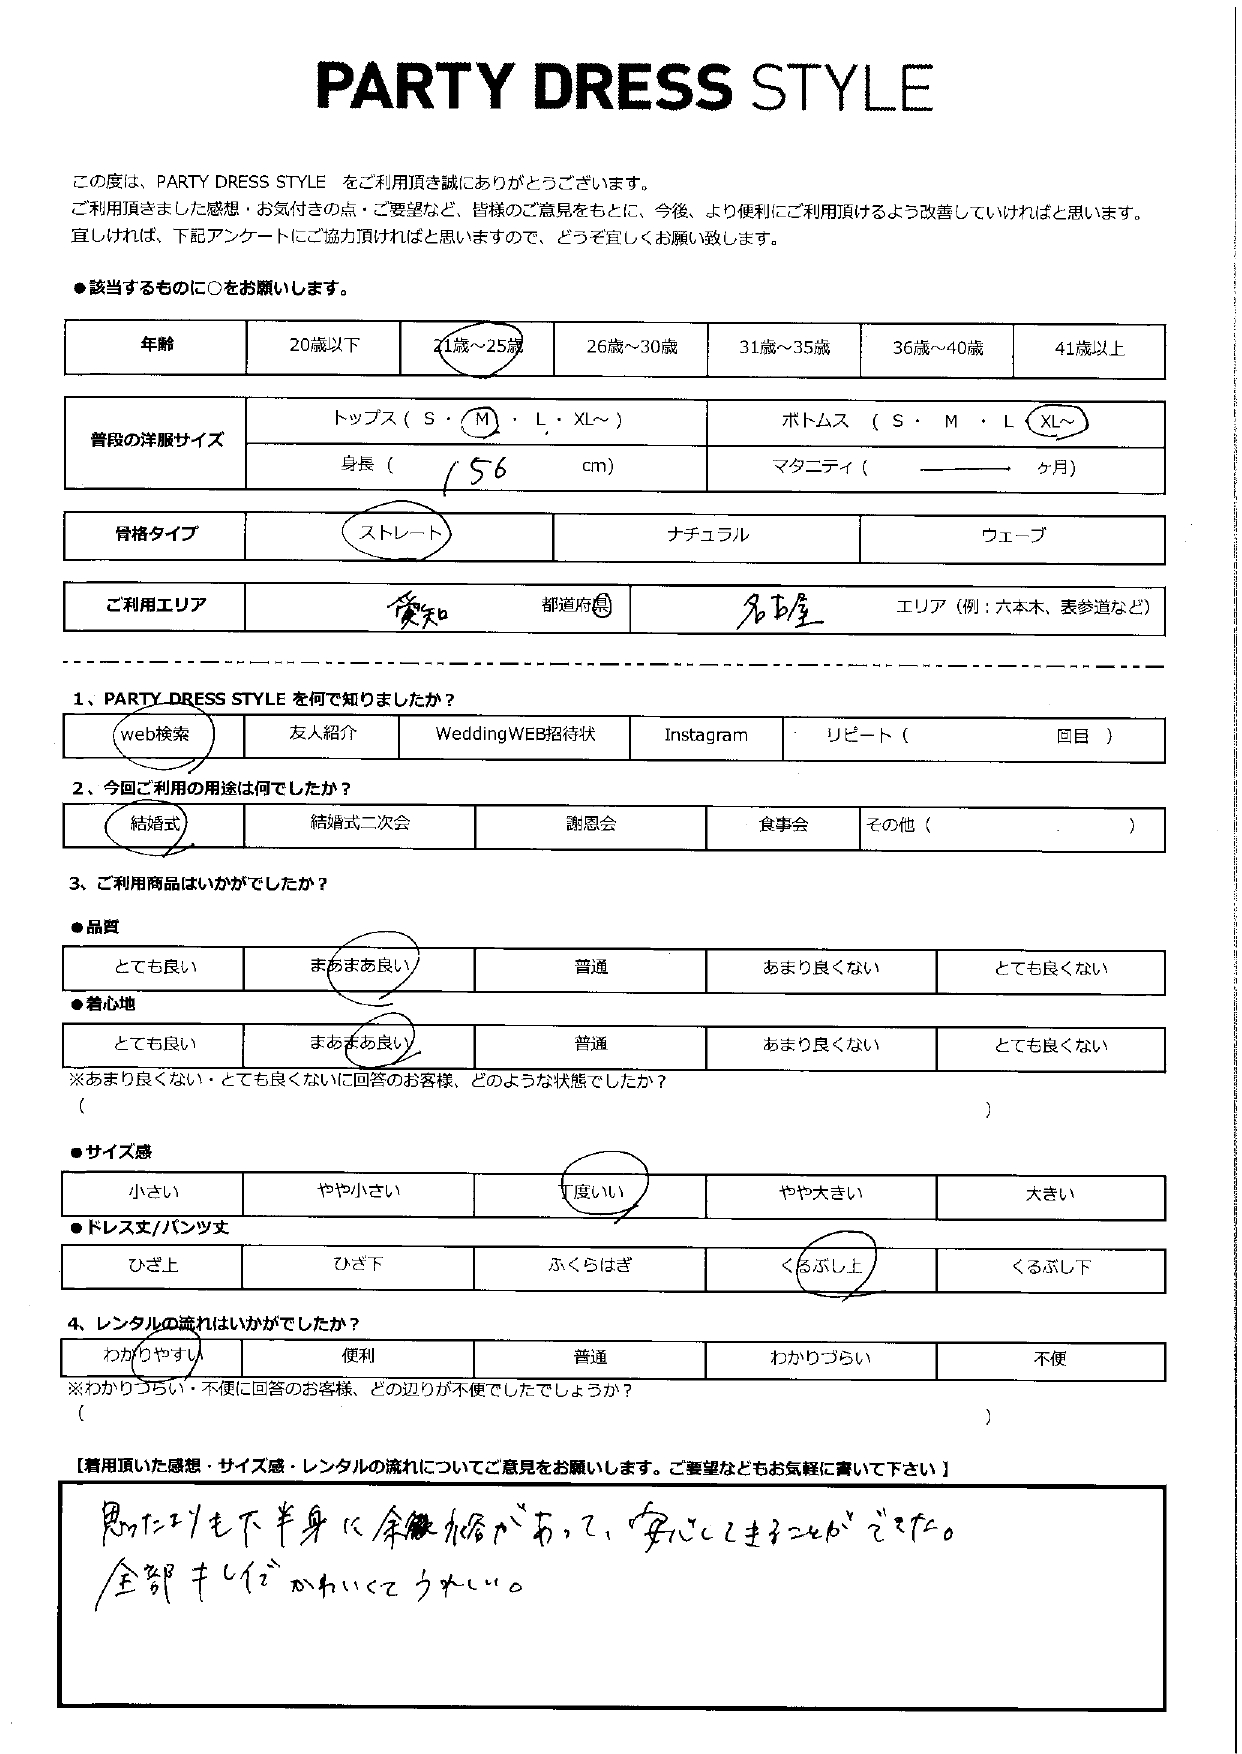 PARTY DRESS STYLE
この度は、PARTY DRESS STYLE をご利用頂き誠にありがとうございます。
ご利用頂きました感想・お気付きの点・ご要望など、皆様のご意見をもとに、今後、より便利にご利用頂けるよう改善していければと思います。
宜しければ、下記アンケートにご協力頂ければと思いますので、どうぞ宜しくお願い致します。
●該当するものに○をお願いします。
年齢 20歳以下 21歳～25歳 26歳～30歳 31歳～35歳 36歳～40歳 41歳以上
普段の洋服サイズ トップス ( S ・ M ・ L ・ XL～ ) ボトムス ( S ・ M ・ L ・ XL～ )
身長 ( 156 cm) マタニティ ( ヶ月)
骨格タイプ ストレート ナチュラル ウェーブ
ご利用エリア 愛知 都道府県 名古屋 エリア（例：六本木、表参道など）
1、PARTY DRESS STYLE を何で知りましたか？
web検索 友人紹介 WeddingWEB招待状 Instagram リピート ( 回目 )
2、今回ご利用の用途は何でしたか？
結婚式 結婚式二次会 謝恩会 食事会 その他 ( )
3、ご利用商品はいかがでしたか？
●品質
とても良い まあまあ良い 普通 あまり良くない とても良くない
●着心地
とても良い まあまあ良い 普通 あまり良くない とても良くない
※あまり良くない・とても良くないに回答のお客様、どのような状態でしたか？
( )
●サイズ感
小さい やや小さい 丁度いい やや大きい 大きい
●ドレス丈/パンツ丈
ひざ上 ひざ下 ふくらはぎ くるぶし上 くるぶし下
4、レンタルの流れはいかがでしたか？
わかりやすい 便利 普通 わかりづらい 不便
※わかりづらい・不便に回答のお客様、どの辺りが不便でしたでしょうか？
( )
【着用頂いた感想・サイズ感・レンタルの流れについてご意見をお願いします。ご要望などもお気軽に書いて下さい】
思ったよりも下半身に余裕があって、安心してきることができた。
全部キレイでかわいくてうれしい。